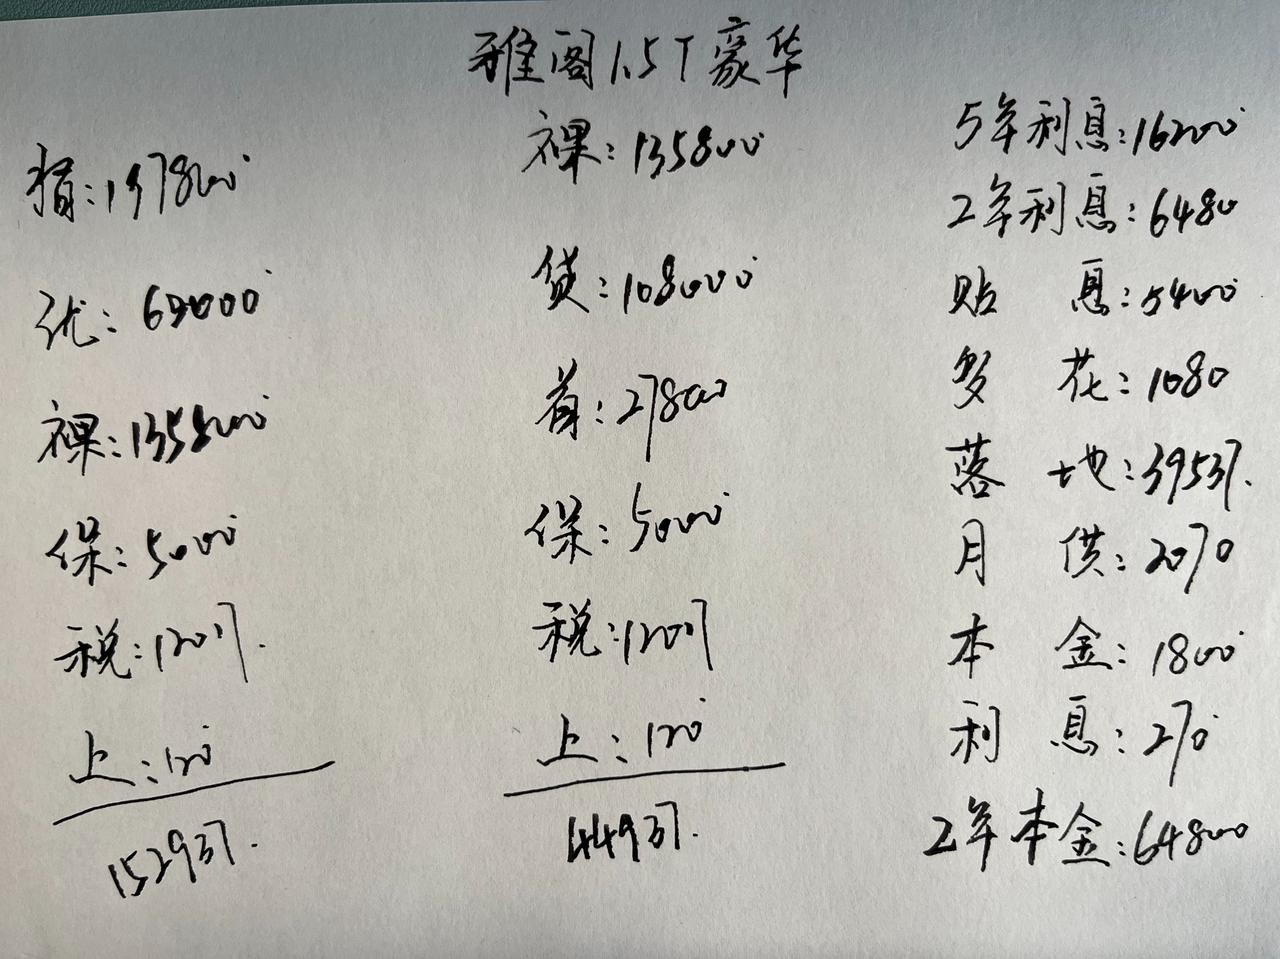 雅阁1.5T豪华
指:197800
优:62000
裸:135800
保:5000
税:12017.
上:120
152937.
裸:135800
贷:108000
首:27800
保:5000
税:12017
上:120
44937.
5年利息:16200
2年利息:6480
贴 息:5400
多 花:1080
落 地:39537.
月 供:2070
本 金:1800
利 息:270
2年本金:64800